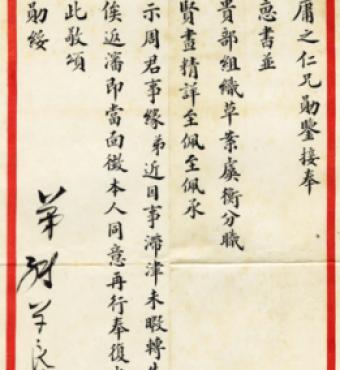 庸之仁兄勋鑒接奉
惠書並
貴部組織草案虞衡分職
賢晝精詳至佩至佩承
示周君事緣弟近日事滯津未暇轉
俟返瀋即當面徵本人同意再行奉復
此敬頌
勛綏
弟張學良